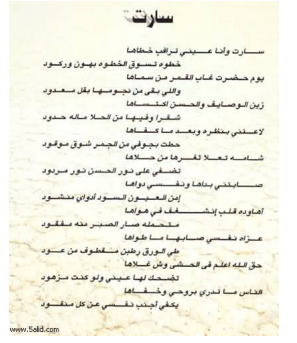 سارت
سارت وأنا عيني تراقب خطاها
خطوه تسوق الخطوه بهون وركود
يوم حضرت غاب القمر من سماها
واللي بقى من نجومها بقل معدود
زين الوصايف والحسن اكتساها
شقرا وفيها من الحلا ماله حدود
لاعتني بنظره وبعد ما كفاها
حطت بجوفي من الجمر شوق موقود
شامه تعلا ثغرها من حلاها
تضفي على نور الحسن نور مردود
صابتني بداها ونفسي دواها
من العيون السود أدواي منشود
أهاوده قلب في هواها
متحمله صار الصبر منه مفقود
عزاه نفسي صابها ما طواها
طي الورق رطبن مقطوف من عود
حق الله اعلم في الحشى وش غلاها
تضحك لها عيني ولو كنت مزهود
الناس ما تدري بروحي وخفاها
يكفي أجنب نفسي عن كل منقود
www.5alid.com